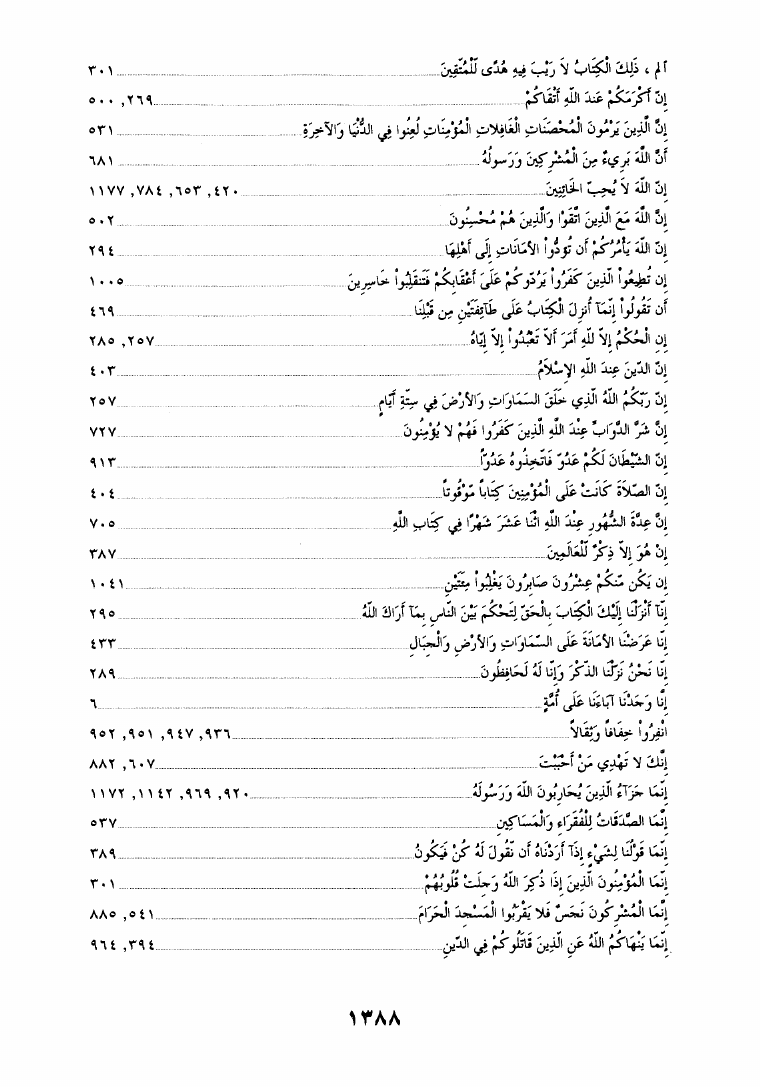 آلم ، ذَلِكَ الْكِتَابُ لاَ رَيْبَ فِيهِ هُدًى لِّلْمُتَّقِينَ ٣٠١
إِنَّ أَكْرَمَكُمْ عَندَ اللَّهِ أَتْقَاكُمْ ٢٦٩, ٥٠٠
إِنَّ الَّذِينَ يَرْمُونَ الْمُحْصَنَاتِ الْغَافِلَاتِ الْمُؤْمِنَاتِ لُعِنُوا فِي الدُّنْيَا وَالآخِرَةِ ٥٣١
أَنَّ اللَّهَ بَرِيءٌ مِنَ الْمُشْرِكِينَ وَرَسُولُهُ ٦٨١
إِنَّ اللَّهَ لاَ يُحِبُّ الخَائِنِينَ ٤٢٠, ٦٥٣, ٧٨٤, ١١٧٧
إِنَّ اللَّهَ مَعَ الَّذِينَ اتَّقَوْا وَالَّذِينَ هُمْ مُحْسِنُونَ ٥٠٢
إِنَّ اللَّهَ يَأْمُرُكُمْ أَن تُؤَدُّواْ الأَمَانَاتِ إِلَى أَهْلِهَا ٢٩٤
إِن تُطِيعُواْ الَّذِينَ كَفَرُواْ يَرُدُّوكُمْ عَلَىَ أَعْقَابِكُمْ فَتَنقَلِبُواْ خَاسِرِينَ ١٠٠٥
أَن تَقُولُواْ إِنَّمَآ أُنزِلَ الْكِتَابُ عَلَى طَآئِفَتَيْنِ مِن قَبْلِنَا ٤٦٩
إِنِ الْحُكْمُ إِلاَّ للّهِ أَمَرَ أَلاَّ تَعْبُدُواْ إِلاَّ إِيَّاهُ ٢٥٧, ٢٨٥
إِنَّ الدِّينَ عِندَ اللَّهِ الإِسْلاَمُ ٤٠٣
إِنَّ رَبَّكُمُ اللَّهُ الَّذِي خَلَقَ السَمَاوَاتِ وَالأَرْضَ فِي سِتَّةِ أَيَّامٍ ٢٥٧
إِنَّ شَرَّ الدَّوَابِّ عِنْدَ اللَّهِ الَّذِينَ كَفَرُوا فَهُمْ لا يُؤْمِنُونَ ٧٢٧
إِنَّ الشَّيْطَانَ لَكُمْ عَدُوٌّ فَاتَّخِذُوهُ عَدُوّاً ٩١٣
إِنَّ الصَّلاَةَ كَانَتْ عَلَى الْمُؤْمِنِينَ كِتَاباً مَّوْقُوتاً ٤٠٤
إِنَّ عِدَّةَ الشُّهُورِ عِنْدَ اللَّهِ اثْنَا عَشَرَ شَهْرًا فِي كِتَابِ اللَّهِ ٧٠٥
إِنْ هُوَ إِلاَّ ذِكْرٌ لِّلْعَالَمِينَ ٣٨٧
إِن يَكُن مِّنكُمْ عِشْرُونَ صَابِرُونَ يَغْلِبُواْ مِئَتَيْنِ ١٠٤١
إِنَّآ أَنْزَلْنَا إِلَيْكَ الْكِتَابَ بِالْحَقِّ لِتَحْكُمَ بَيْنَ النَّاسِ بِمَآ أَرَاكَ اللَّهُ ٢٩٥
إِنَّا عَرَضْنَا الأَمَانَةَ عَلَى السَّمَاوَاتِ وَالأَرْضِ وَالْجِبَالِ ٤٣٣
إِنَّا نَحْنُ نَزَّلْنَا الذِّكْرَ وَإِنَّا لَهُ لَحَافِظُونَ ٢٨٩
إِنَّا وَجَدْنَا آبَاءَنَا عَلَى أُمَّةٍ ٦
انْفِرُواْ خِفَافاً وَثِقَالاً ٩٣٦, ٩٤٧, ٩٥١, ٩٥٢
إِنَّكَ لا تَهْدِي مَنْ أَحْبَبْتَ ٦٠٧, ٨٨٢
إِنَّمَا جَزَآءُ الَّذِينَ يُحَارِبُونَ اللَّهَ وَرَسُولَهُ ٩٢٠, ٩٦٩, ١١٤٢, ١١٧٢
إِنَّمَا الصَّدَقَاتُ لِلْفُقَرَاءِ وَالْمَسَاكِينِ ٥٣٧
إِنَّمَا قَوْلُنَا لِشَيْءٍ إِذَآ أَرَدْنَاهُ أَن نَّقُولَ لَهُ كُنْ فَيَكُونُ ٣٨٩
إِنَّمَا الْمُؤْمِنُونَ الَّذِينَ إِذَا ذُكِرَ اللَّهُ وَجِلَتْ قُلُوبُهُمْ ٣٠١
إِنَّمَا الْمُشْرِكُونَ نَجَسٌ فَلا يَقْرَبُوا الْمَسْجِدَ الْحَرَامَ ٥٤١, ٨٨٥
إِنَّمَا يَنْهَاكُمُ اللَّهُ عَنِ الَّذِينَ قَاتَلُوكُمْ فِي الدِّينِ ٣٩٤, ٩٦٤
١٣٨٨